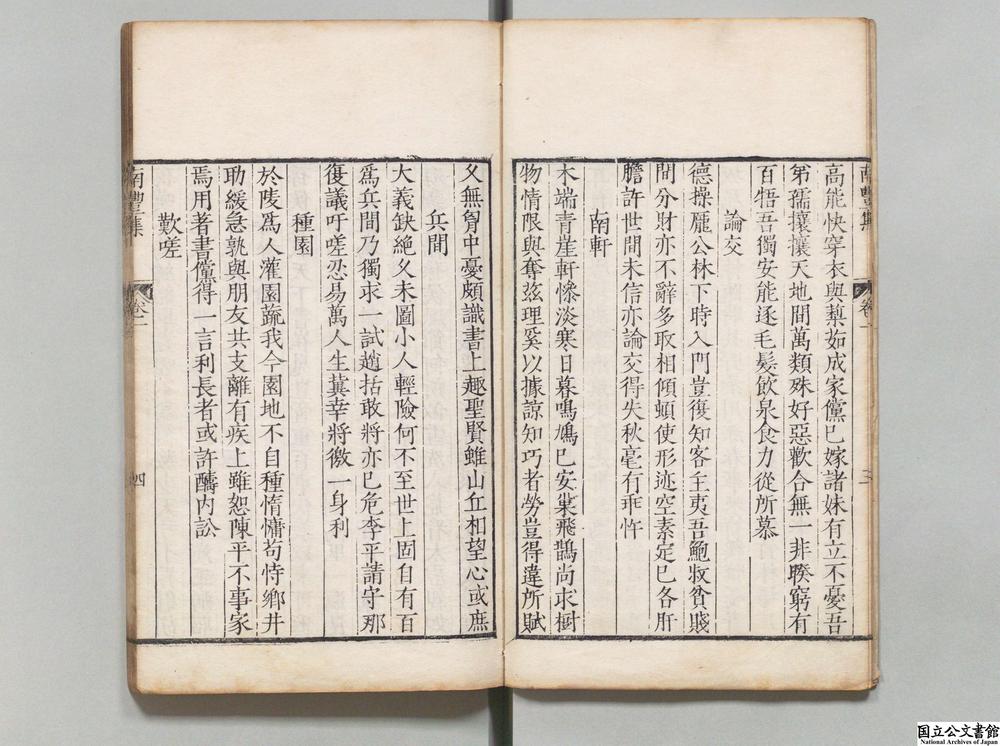 高能快穿衣與藜茹成家儻已嫁諸妹有立不憂吾
第孺攘攘天地間萬類殊好惡歡合無一非睽窮有
百牾吾獨安能逐毛髮飲泉食力從所慕
論交
德操龐公林下時入門豈復知客主夷吾鮑叔貧賤
間分財亦不辭多取相傾頓使形迹空素定已各肝
膽許世間未信亦論交得失秋毫有乖忤
南軒
木端青崖軒慘淡寒日暮鳴鳩已安巢飛鵲尚求樹
物情限與奪玆理奚以據諒知巧者勞豈得違所賦
又無胷中憂頗識書上趣聖賢雖山丘相望心或庶
兵間
大義缺絕久未圖小人輕險何不至世上固自有百
爲兵間乃獨求一試趙括敢將亦已危李平請守那
復議吁嗟忍易萬人生冀幸將徼一身利
種園
於陵爲人灌園蔬我今園地不自種惰慵苟恃鄉井
助緩急孰與朋友共支離有疾上雖恕陳平不事家
焉用著書儻得一言利長者或許醻內訟
歎嗟
南豐集
卷一
三
南豐集
卷一
四
国立公文書館
National Archives of Japan